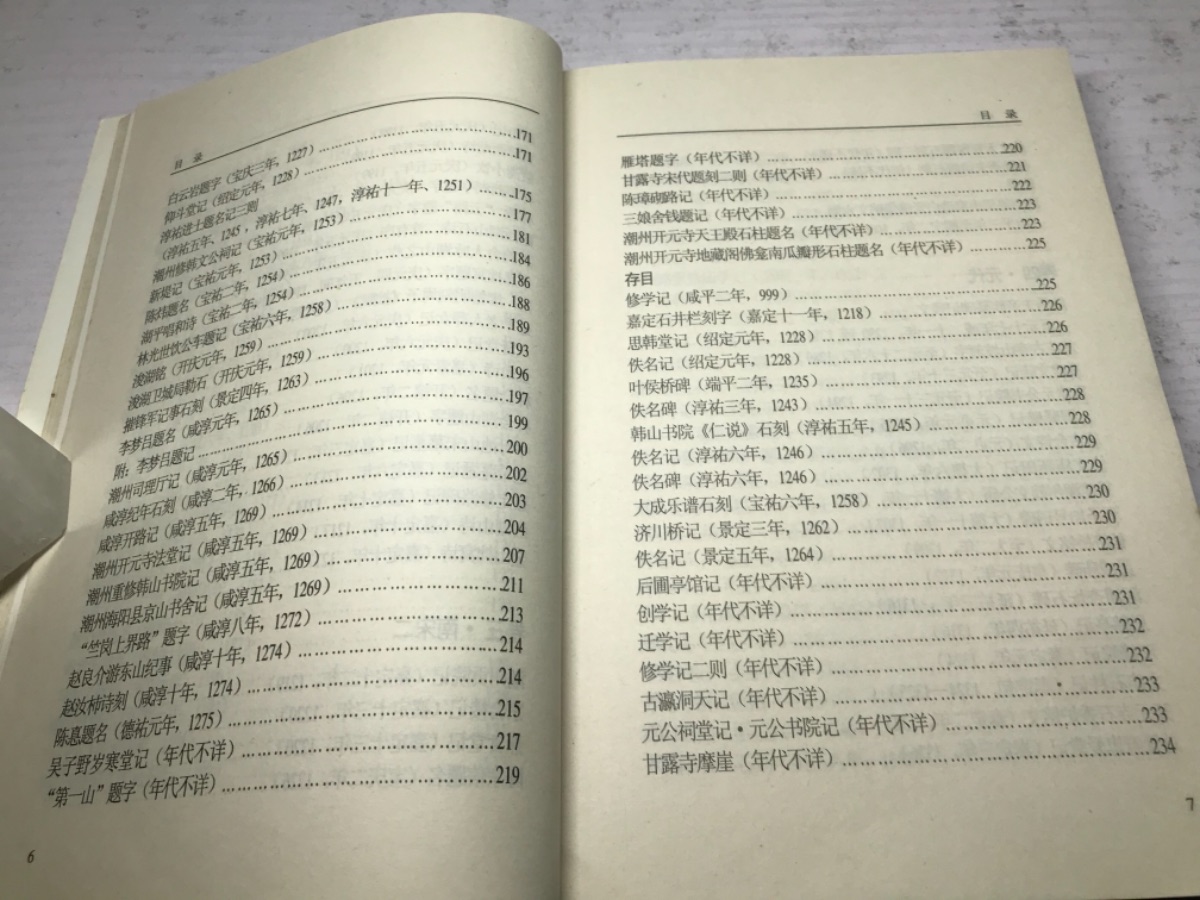 目 录
白云岩题字（宝庆三年，1227）……………………………171
仰斗堂记（绍定元年，1228）……………………………171
淳祐进士题名记三则
（淳祐五年、1245，淳祐七年、1247，淳祐十一年、1251）………175
潮州修韩文公祠记（宝祐元年，1253）……………………177
新堤记（宝祐元年，1253）……………………………181
陈炜题名（宝祐二年，1254）……………………………184
湖平唱和诗（宝祐二年，1254）……………………………186
林光世饮公车题记（宝祐六年，1258）……………………188
浚湖铭（开庆元年，1259）……………………………189
浚湖卫城局勒石（开庆元年，1259）……………………193
摧锋军记事石刻（景定四年，1263）……………………196
李梦吕题名（咸淳元年，1265）……………………………197
附：李梦吕题记……………………………199
潮州司理厅记（咸淳元年，1265）……………………200
咸淳纪年石刻（咸淳二年，1266）……………………202
咸淳开路记（咸淳五年，1269）……………………203
潮州开元寺法堂记（咸淳五年，1269）……………………204
潮州重修韩山书院记（咸淳五年，1269）……………………207
潮州海阳县京山书舍记（咸淳五年，1269）……………………211
“竺岗上界路”题字（咸淳八年，1272）……………………213
赵良介游东山纪事（咸淳十年，1274）……………………214
赵汝柿诗刻（咸淳十年，1274）……………………214
陈惪题名（德祐元年，1275）……………………215
吴子野岁寒堂记（年代不详）……………………217
“第一山”题字（年代不详）……………………219
6
目 录
雁塔题字（年代不详）……………………220
甘露寺宋代题刻二则（年代不详）……………………221
陈璋砌路记（年代不详）……………………222
三娘舍钱题记（年代不详）……………………223
潮州开元寺天王殿石柱题名（年代不详）……………………223
潮州开元寺地藏阁佛龛南瓜瓣形石柱题名（年代不详）…………225
存目
修学记（咸平二年，999）……………………225
嘉定石井栏刻字（嘉定十一年，1218）……………………226
思韩堂记（绍定元年，1228）……………………226
佚名记（绍定元年，1228）……………………227
叶侯桥碑（端平二年，1235）……………………227
佚名碑（淳祐三年，1243）……………………228
韩山书院《仁说》石刻（淳祐五年，1245）……………………228
佚名记（淳祐六年，1246）……………………229
佚名碑（淳祐六年，1246）……………………229
大成乐谱石刻（宝祐六年，1258）……………………230
济川桥记（景定三年，1262）……………………230
佚名记（景定五年，1264）……………………231
后圃亭馆记（年代不详）……………………231
创学记（年代不详）……………………231
迁学记（年代不详）……………………232
修学记二则（年代不详）……………………232
古瀛洞天记（年代不详）……………………233
元公祠堂记·元公书院记（年代不详）……………………233
甘露寺摩崖（年代不详）……………………234
7